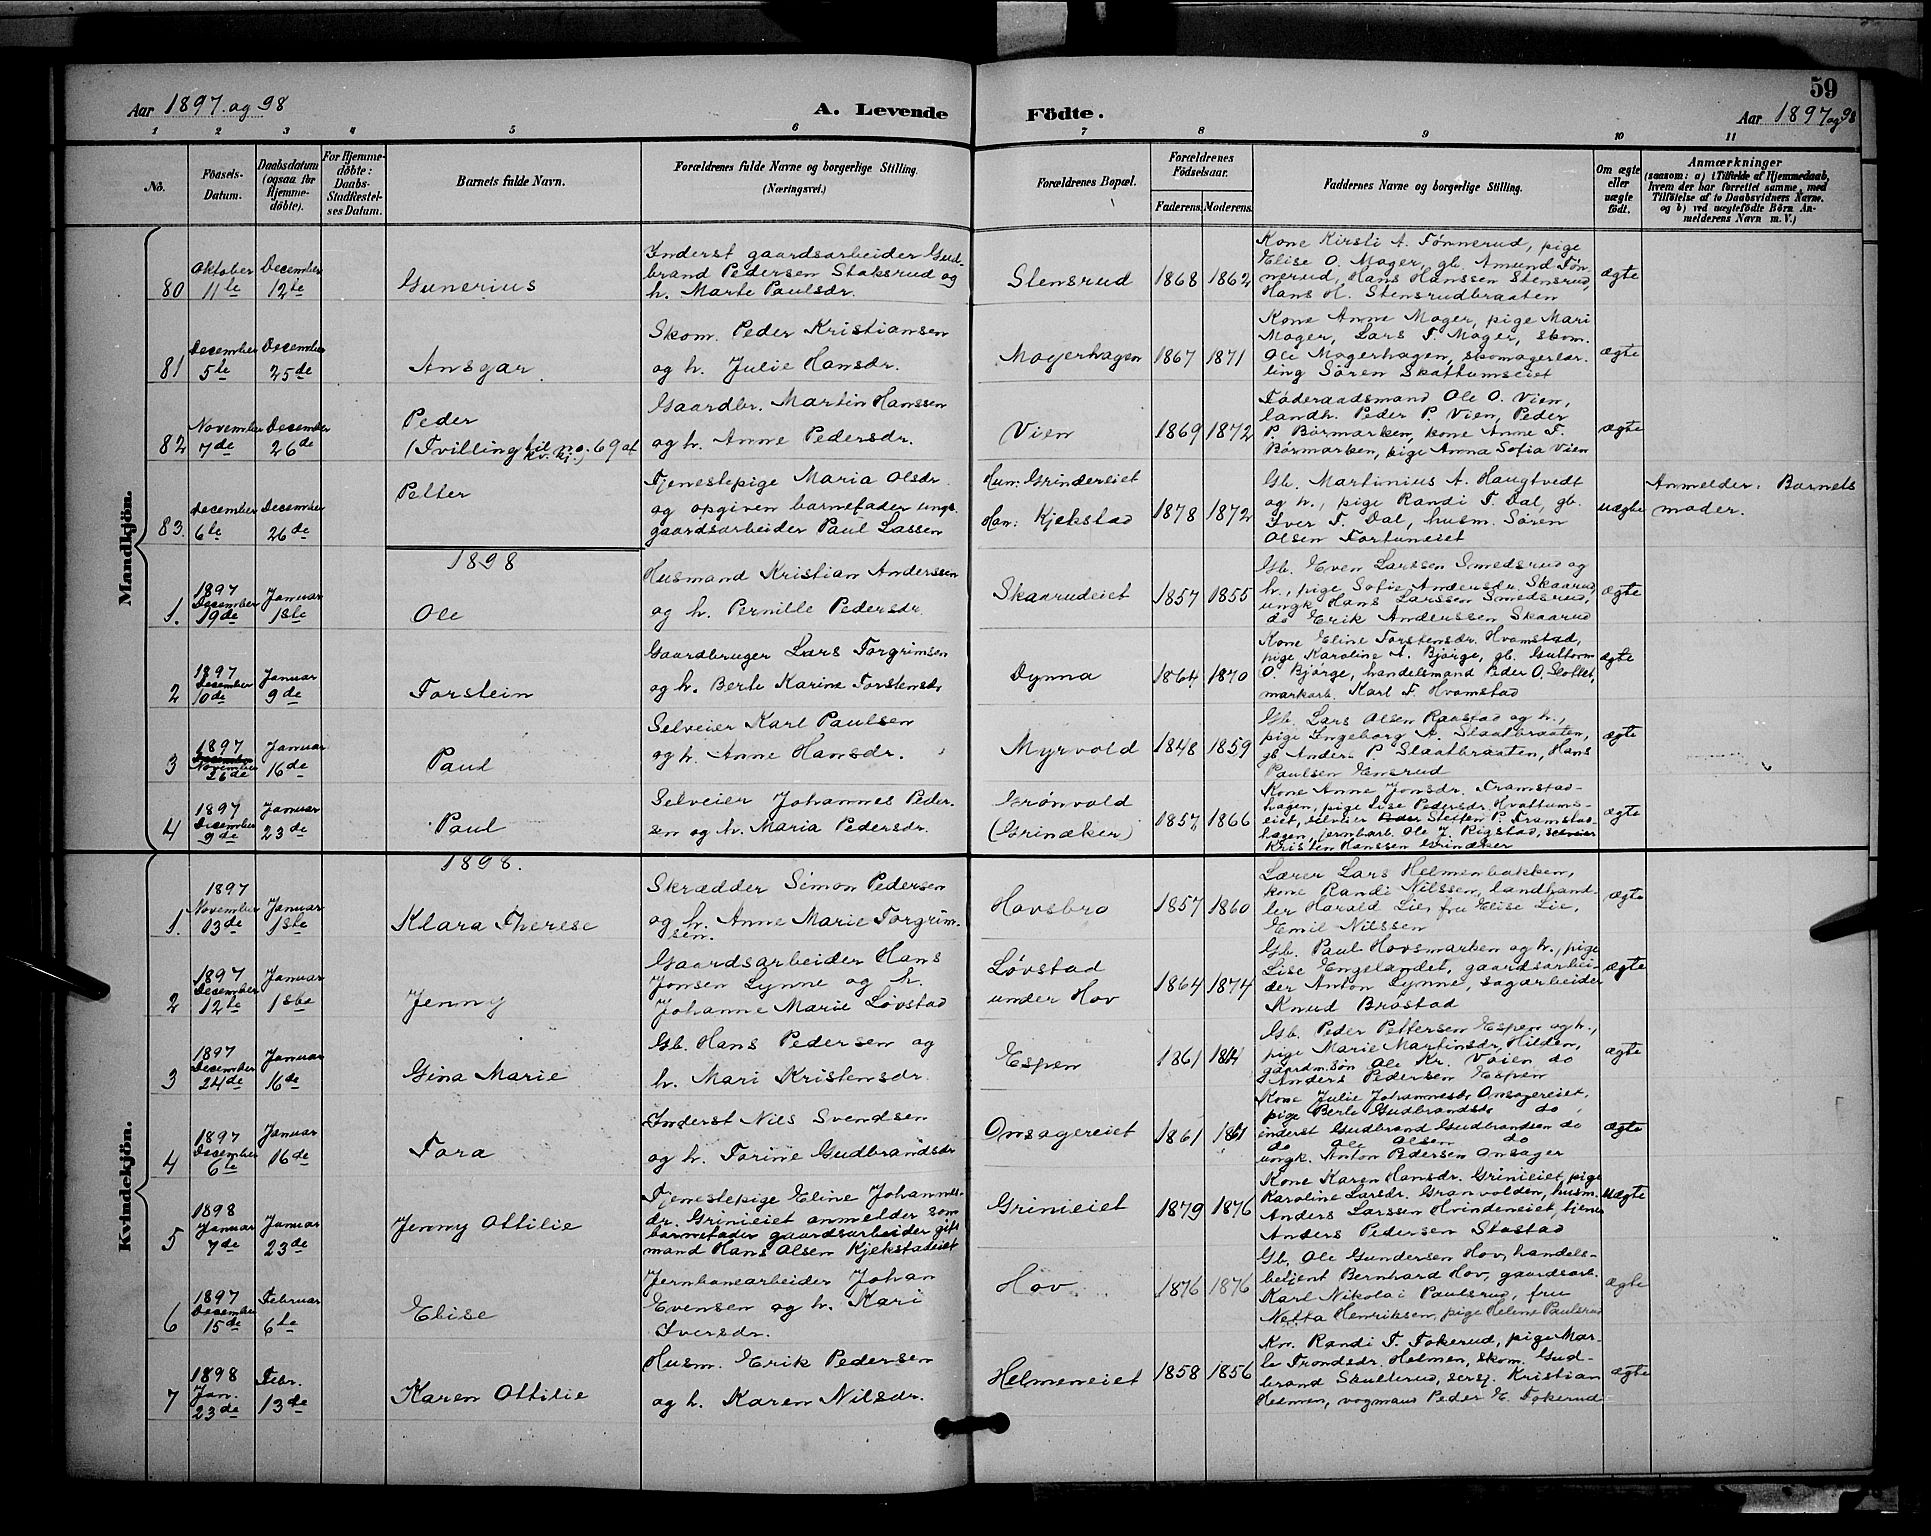 59
Aar 1897 og 98
A. Levende Födte.
Aar 1897 og 98
1 2 3 4 5 6 7 8 9 10 11
No.
Födsels-
Datum.
Daabsdatum
(ogsaa for
Hjemme-
döbte).
For Hjemme-
döbte:
Daabs-
Stadfestel-
ses Datum.
Barnets fulde Navn.
Forældrenes fulde Navne og borgerlige Stilling.
(Næringsvei.)
Forældrenes Bopæl.
Forældrenes
Födselsaar.
Faderens. Moderens.
Faddernes Navne og borgerlige Stilling.
Om ægte
eller
uægte
født.
Anmærkninger
(saasom: a) i Tilfælde af Hjemmedaab,
hvem der har forrettet samme, med
Tilföielse af to Daabsvidners Navne.
og b) ved uægtefödte Börn An-
melderens Navn m. V.)
Mandkjön.
80
Oktober
11te
December
12te
Gunerius
Inderst gaardsarbeider Gud-
brand Pedersen Staksrud og
h. Marte Paulsdr.
Stensrud
1868 1862
Kone Kirsti A. Tønnerud, pige
Elise O. Mager, gb. Amund Tøn-
nerud, Hans Hanssen Stensrud,
Hans H. Stensrudbraaten
ægte
81
December
5te
December
25de
Ansgar
Skom. Peder Kristiansen
og h. Julie Hansdr.
Magerhagen
1867 1871
Kone Anne Mager, pige Mari
Mager, Lars T. Mager, skom.
Ole Magerhagen, skomagerlær-
ling Søren Skattumseiet
ægte
82
November
7de
December
26de
Peder
(Tvilling til no. 69 af
kv. kj.)
Gaardbr. Martin Hanssen
og h. Anne Pedersdr.
Vien
1869 1872
Føderaadsmand Ole O. Vien,
landh. Peder P. Vien, Peder
P. Børmarken, kone Anne T.
Børmarken, pige Anna Sofia Vien
ægte
83.
December
6te
December
26de
Petter
Tjenestepige Maria Olsdr.
og opgiven barnefader ungk.
gaardsarbeider Paul Lassen
Hun: Grindereiet
Han: Kjekstad
1878 1872
Gb. Martinius A. Haugtvedt
og h., pige Randi T. Dal, gb.
Iver T. Dal, husm. Søren
Olsen Fortuneiet
uægte
Anmelder: Barnets
moder.
1898
1.
1897
December
19de
Januar
1ste
Ole
Husmand Kristian Anderssen
og h. Pernille Pedersdr.
Skaarudeiet
1857 1855
Gb. Even Larssen Smedsrud og
h., pige Sofie Andersdr. Skaarud,
ungk. Hans Larssen Smedsrud,
do Erik Anderssen Skaarud
ægte
2
1897
December
10de
Januar
9de
Torstein
Gaardbruger Lars Torgrimsen
og h. Berte Karine Torstensdr
Dynna
1864 1870
Kone Eline Torstensdr. Hvamstad,
pige Karoline A. Bjørge, gb. Guttorm
O. Bjørge, handelsmand Peder O. Slottet,
markarb. Karl T. Hvamstad
ægte
3
1897
November
26de
Januar
16de
Paul
Selveier Karl Paulsen
og h. Anne Hansdr.
Myrvold
1848 1859
Gb. Lars Olsen Rarstad og h.,
pige Ingeborg A. Slaatbraaten,
gb Anders P. Slaatbraaten, Hans
Paulsen Ensrud
ægte
4
1897
December
9de
Januar
23de
Paul
Selveier Johannes Peder-
sen og h. Maria Pedersdr.
Grønvold
(Grinaker)
1857 1866
Kone Anne Jonsdr. Framstad-
hagen, pige Lise Pedersdr. Hvattums-
eiet, selveier Steffen P. Framstad-
hagen, jernbarb. Ole J. Rigstad, selveier
Kristen Hanssen Grinaker
ægte
Kvindekjön.
1898.
1.
1897
November
13de
Januar
1ste
Klara Therese
Skrædder Simon Pedersen
og h. Anne Marie Torgrim-
sen.
Hovsbro
1857 1860
Lærer Lars Helmenbakken,
kone Randi Nilssen, landhand-
ler Harald Lie, fru Elise Lie,
Emil Nilssen
ægte
2
1897
December
12te
Januar
1ste
Jenny
Gaardsarbeider Hans
Jonsen Lynne og h.
Johanne Marie Løvstad
Løvstad
under Hov
1864 1874
Gb. Paul Hovsmarken og h., pige
Lise Engelandet, gaardsarbei-
der Anton Lynne, sagarbeider
Knud Braastad
ægte
3
1897
December
24de
Januar
16de
Gina Marie
Gb. Hans Pedersen og
h. Mari Kristensdr.
Espen
1861
Gb. Peder Pettersen Espen og h.,
pige Marie Martinsdr. Hilden,
gaardm.søn Ole Kr. Vøien do
Anders Pedersen Espen
ægte
4
1897
December
6te
Januar
16de
Tora
Inderst Nils Svendsen
og h. Torine Gudbrandsdr
Onsagereiet
1861 1861
Kone Julie Johannesdr. Onsagereiet,
pige Berte Gudbrandsdr do,
inderst Gudbrand Gudbrandsen do
do Ole Olsen do
ungk. Anton Pedersen Onsager
ægte
5
1898
Januar
7de
Januar
23de
Jenny Ottilie
Tjenestepige Eline Johannes-
dr. Grinieiet anmelder som
barnefader gaardsarbeider gift
mand Hans Olsen Kjekstadeiet
Grinieiet
1879 1876
Kone Karen Hansdr. Grinieiet, pige
Karoline Larsdr. Granvolden, husm.
Anders Larssen Hvindeneiet, tjener
Anders Pedersen Stastad
uægte
6
1897
December
15de
Februar
6te
Elise
Jernbanearbeider Johan
Evensen og h. Kari
Iversdr.
Hov
1876 1876
Gb. Ole Gundersen Hov, handels-
betjent Bernhard Hov, gaardsarb.
Karl Nikolai Paulsrud, fru
Netta Henriksen, pige Helene Paulsrud
ægte
7
1898
Jan.
23de
Febr.
13de
Karen Ottilie
Husm. Erik Pedersen
og h. Karen Nilsdr.
Helmeneiet
1858 1856
Kn. Randi T. Tokerud, pige Mar-
te Trondsdr. Helmen, skom. Gud-
brand Skulterud, sersj. Kristian
Helmen, vogmand Peder E. Tokerud
ægte